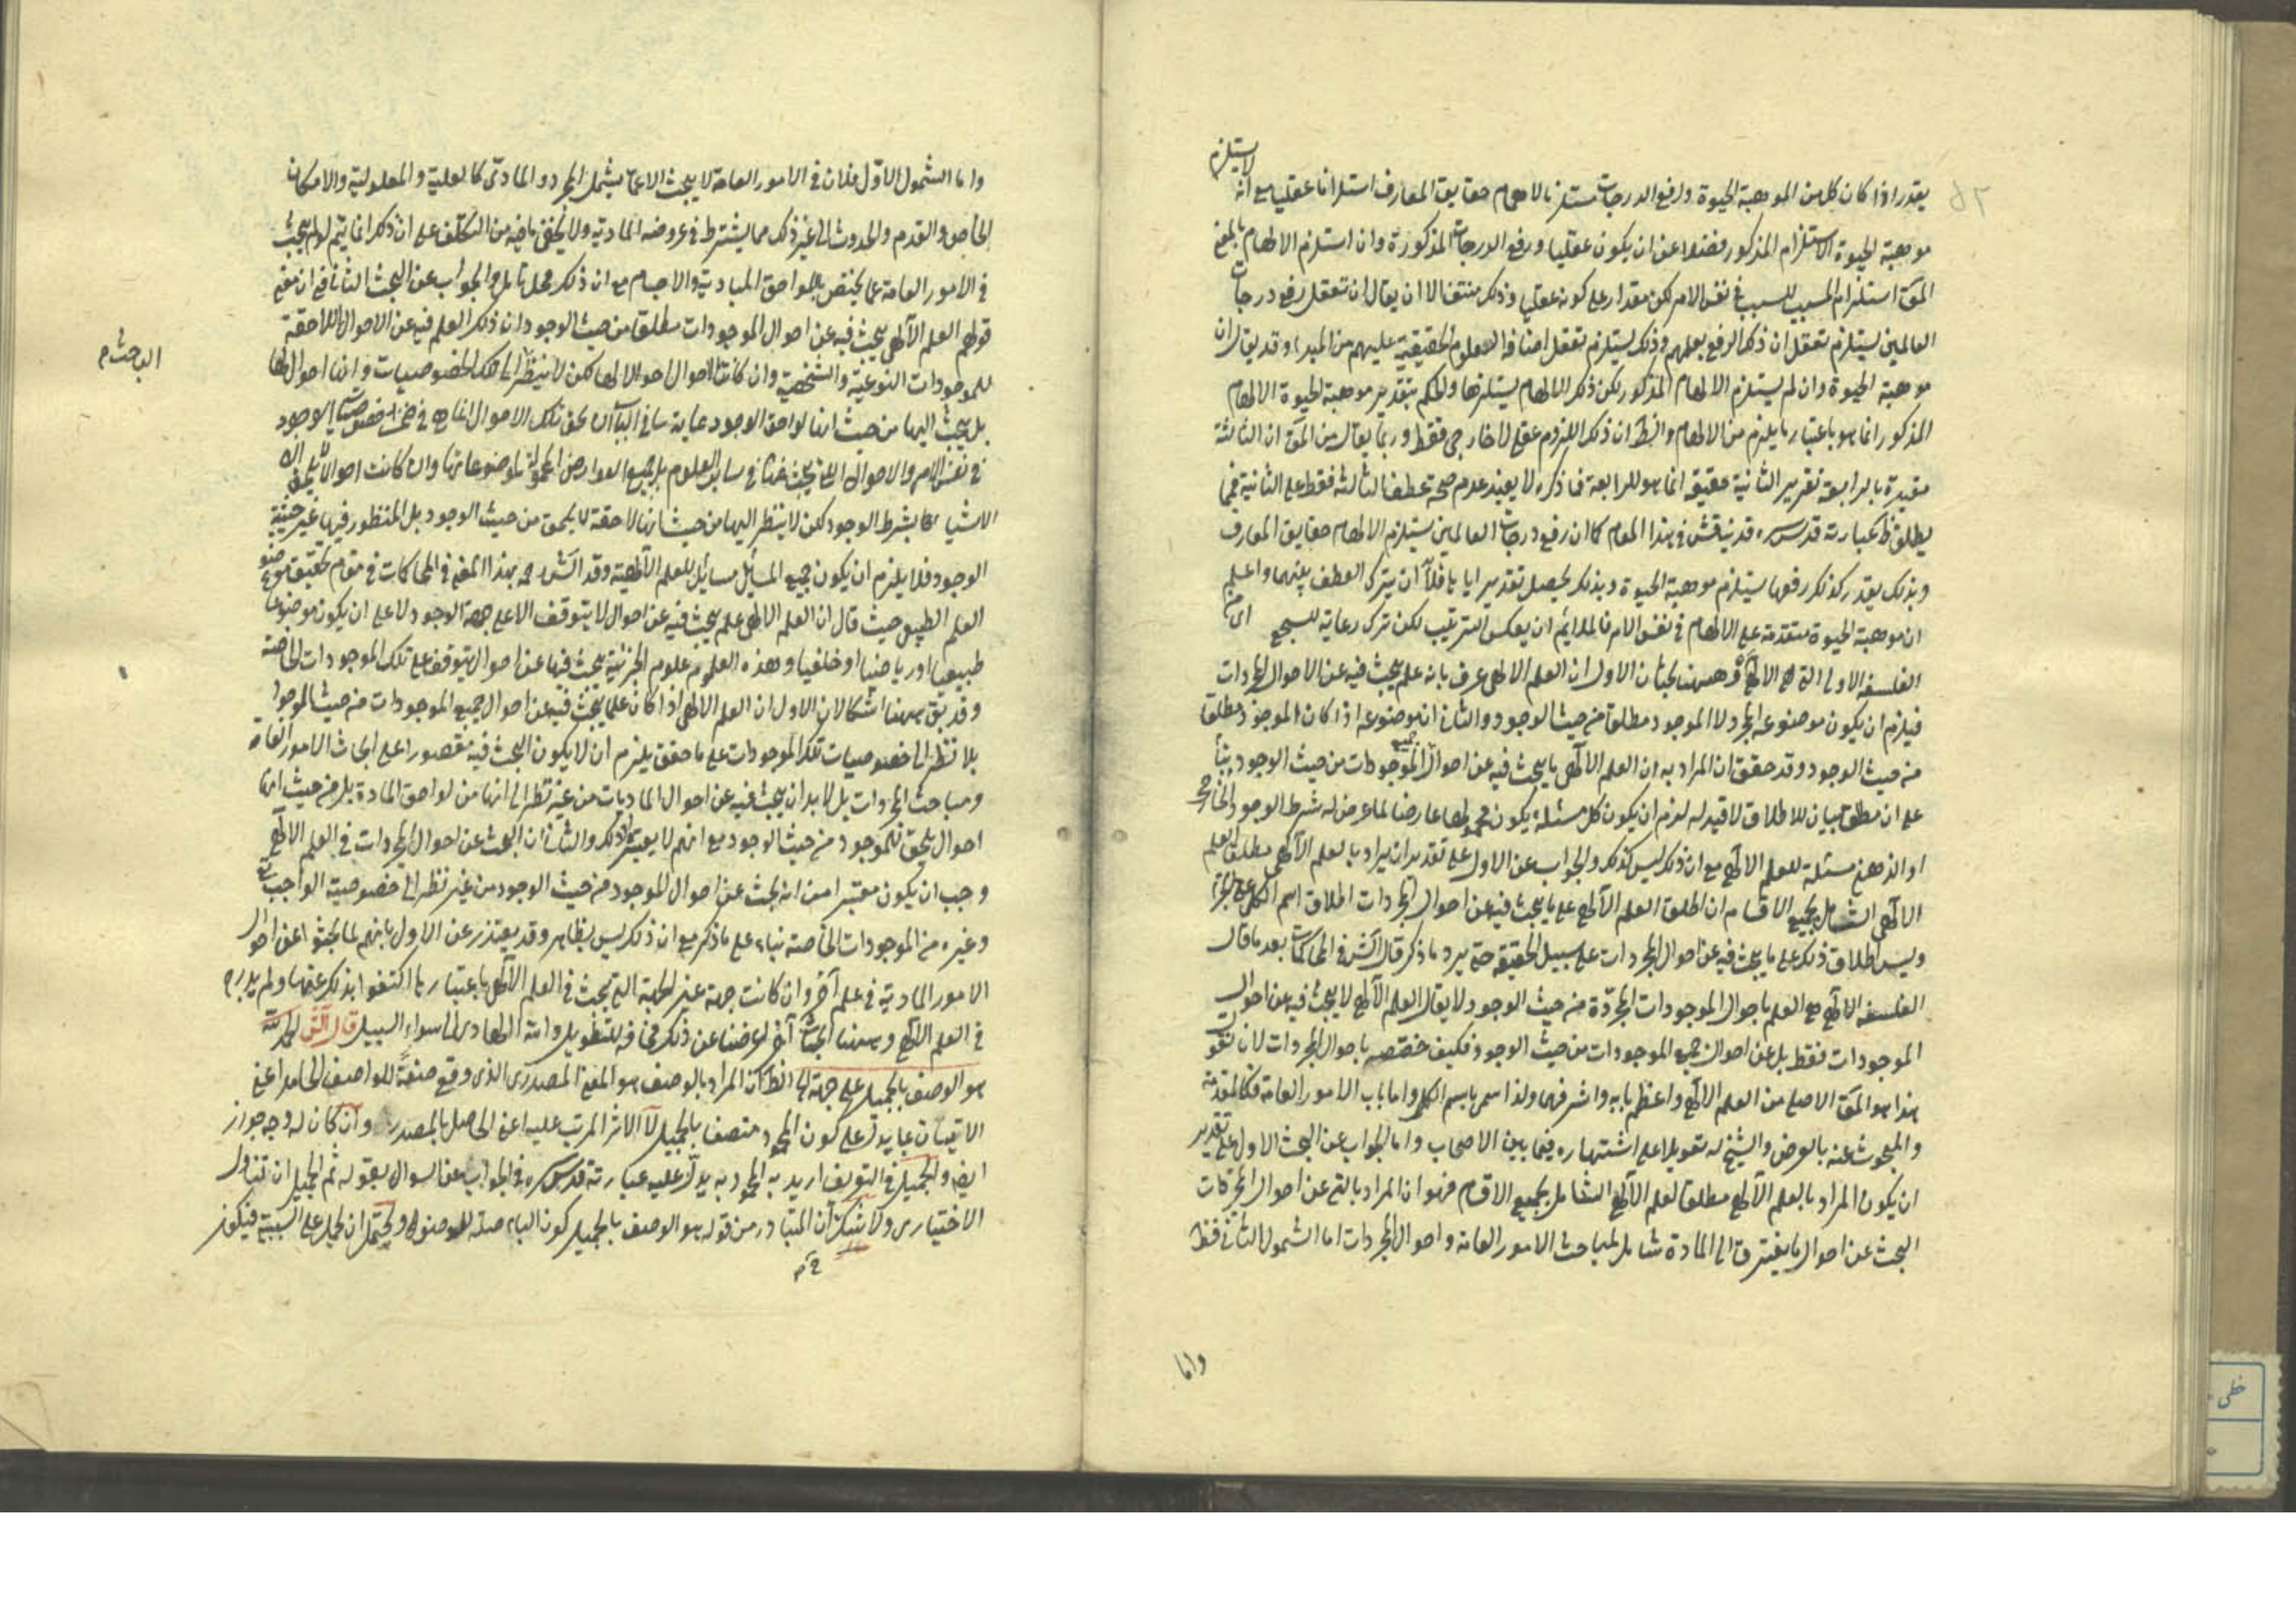 لا يستلزم
يقدر اذا كان كل من الموهبة الحيوة ورفع الدرجات مستلزما لالهام حقايق المعارف استلزاما عقليا مع انه
موهبة الحيوة الاستلزام المذكور فضلا عن ان يكون عقليا ورفع الدرجات المذكورة وان استلزم الالهام بالمعنى
استلزام المسبب للسبب في نفس الامر لكن مقدار على كونه عقليا وذلك منتف الا ان يقال ان تعقل رفع درجات
العالمين يستلزم تعقل ان ذلك الرفع بعلمهم وذلك يستلزم تعقل افاضة العلوم الحقيقية عليهم من المبدا وقد يقال ان
موهبة الحيوة وان لم يستلزم الالهام المذكور لكن ذلك الالهام يستلزمها والحكم بتقدير موهبة الحيوة الالهام
المذكور انما هو باعتبار ما يلزم من الالهام والظ ان ذلك اللزوم عقلى لا خارجى فقط وربما يقال من ان الثالثة
مقيدة بالرابعة تقرير الثانية حقيقة انما هو للرابعة فما ذكره لا يفيد عدم صحة عطف الثالثة فقط على الثانية فيما
يطلق عبارته قدس سره قد يناقش في هذا المقام كما ان رفع درجات العالمين يستلزم الالهام حقايق المعارف
وبذلك يقدر كذلك رفعها يستلزم موهبة الحيوة وبذلك يحصل تقدير ان يترك العطف بينهما واعلم
ان موهبة الحيوة متقدمة على الالهام في نفس الامر فالملايم ان يعكس الترتيب لكن ترك رعاية للسجع اى من
الفلسفة الاولى التى هى الالهى وههنا بحثان الاول ان العلم الالهى عرف بانه علم يبحث فيه عن الاحوال المجردات
فيلزم ان يكون موضوعه المجرد لا الموجود مطلقا من حيث الوجود والثانى ان موضوعه اذا كان الموجود مطلقا
من حيث الوجود وقد حقق ان المراد به ان العلم الالهى ما يبحث فيه عن احوال جميع الموجودات من حيث الوجود بناء
على ان مطلقا بيان للاطلاق لا قيد له لزم ان يكون كل مسئلة يكون محمولها عارضا لما عرض له شرط الوجود الخارجى
او الذهنى مسئلة للعلم الالهى مع ان ذلك ليس كذلك والجواب عن الاول على تقدير ان يراد بالعلم الالهى مطلق العلم
الالهى الشامل لجميع الاقسام ان اطلق العلم الالهى على ما يبحث فيه عن احوال المجردات اطلاق اسم الكلى على الجزئى
وليس اطلاق ذلك على ما يبحث فيه عن احوال المجردات على سبيل الحقيقة حتى يرد ما ذكر قال الش في المحاكمات بعد ما قال
الفلسفة الالهى هى العلم باحوال الموجودات المجردة من حيث الوجود لا يقال العلم الالهى لا يبحث فيه عن احوال
الموجودات فقط بل عن احوال جميع الموجودات من حيث الوجود فكيف خصصه باحوال المجردات لانا نقول
هذا هو الاصلى من العلم الالهى واعظم بابه واشرفها ولذا سمى باسم الكل واما باب الامور العامة فكالمقدمة
والمبحوث عنه بالعرض والشيخ له تعويلا على اشتهاره فيما بين الاصحاب واما الجواب عن البحث الاول على تقدير
ان يكون المراد بالعلم الالهى مطلق العلم الالهى الشامل لجميع الاقسام فهو ان المراد بالبحث عن احوال المجردات
البحث عن احوال ما يفتقر الى المادة شامل لمباحث الامور العامة واحوال المجردات اما الشمول الثانى فظ
واما
واما الشمول الاول فلان في الامور العامة لا يبحث الا عما يشمل المجرد والمادى كالعلية والمعلولية والامكان
الخاص والقدم والحدوث الى غير ذلك مما يشترط في عروضه المادية ولا يخفى ما فيه من التكلف على ان ذلك انما يتم لو لم يبحث
في الامور العامة عما يختص باللواحق المادية والاجسام مع ان ذلك محل تامل والجواب عن البحث الثانى فهو ان معنى
قولهم العلم الالهى يبحث فيه عن احوال الموجودات مطلقا من حيث الوجود ان ذلك العلم فيه عن الاحوال اللاحقة
الباحث م
للموجودات النوعية والشخصية وان كانت الاحوال احوالا لها لكن لا ينظر الى تلك الخصوصيات وانها احوال لها
بل يبحث اليها من حيث انها لواحق الوجود غاية ما في الباب ان لحق تلك الاحوال انما هى في ضمن خصوصيات الوجود
في نفس الامر والاحوال التى يبحث عنها في ساير العلوم بل جميع العوارض المحمولة لموضوعاتها وان كانت احوالا يلحق
الاشياء لها بشرط الوجود لكن لا ينظر اليها من حيث انها لاحقة لا يلحق من حيث الوجود بل المنظور فيها غير حيثية
الوجود فلا يلزم ان يكون جميع المسائل مسائل للعلم الالهية وقد الش بهذا المعنى في المحاكمات في مقام تحقيق موضوع
العلم الطبيعى حيث قال ان العلم الالهى علم يبحث فيه عن احوال لا يتوقف الا على جهة الوجود لا على ان يكون موضوعا
طبيعيا او رياضيا او خلقيا وهذه العلوم علوم الجزئية يبحث فيها عن احوال يتوقف على تلك الموجودات الخاصة
وقد بقى ههنا اشكالان الاول ان العلم الالهى اذا كان علما يبحث فيه عن احوال جميع الموجودات من حيث الوجود
بلا نظر الى خصوصيات تلك الموجودات على ما حقق يلزم ان لا يكون البحث فيه مقصورا على ابحاث الامور العامة
ومباحث المجردات بل لابد ان يبحث فيه عن احوال الماديات من غير نظر الى انها من لواحق المادة بل من حيث انها
احوال يلحق للموجود من حيث الوجود مع انهم لا يعتبروا ذلك والثانى ان البحث عن احوال المجردات في العلم الالهى
وجب ان يكون معتبرا من انه يبحث عن احوال للموجود من حيث الوجود من غير نظر الى خصوصية الواجب
وغيره من الموجودات الخاصة بناء على ما ذكر مع ان ذلك ليس بظاهر وقد يعتذر عن الاول بانهم لما بحثوا عن احوال
الامور المادية في علم آخر وان كانت جهة غير الجهة التى تبحث في العلم الالهى باعتبارها اكتفوا بذلك عنها ولم يلد به
في العلم الالهى وههنا ابحاث آخر اعرضنا عن ذلك مخافة للتطويل والله الهادى الى سواء السبيل قال الش الحمد لله
هو الوصف بالجميل على جهة الظ ان المراد بالوصف هو المعنى المصدرى الذى وقع صفة للواصف الحامد اعنى
الاتيان بما يدل على كون المحمود متصفا بالجميل لا الاثر المرتب عليه اعنى الحاصل بالمصدر وان كان له وجه جواز
ايض والجميل في التعريف اريد به المحمود به يدل عليه عبارته قدس سره في الجواب عن السوال بقوله ثم الجميل ان تناول
الاختيارى ولا شك ان المتبادر من قوله هو الوصف بالجميل كون الباء صلة للوصف ويحتمل ان يحمل على السببية فيكون